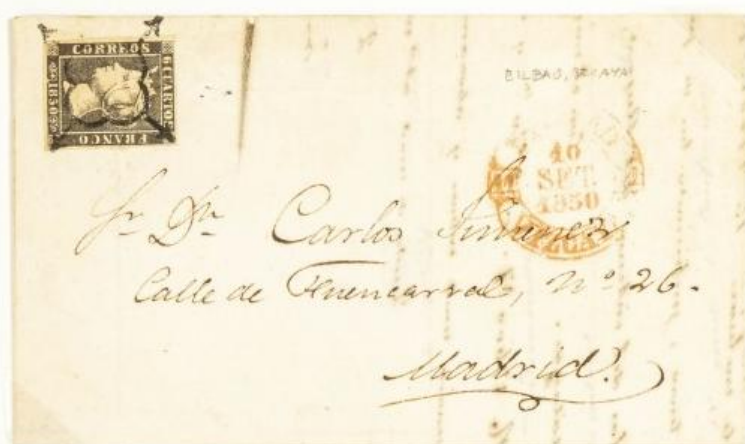 CORREOS
6 CUARTOS
1850
FRANCO
BILBAO, VIZCAYA
10
SET.
1850
Sr. Dn. Carlos Jimenez
Calle de Fuencarral, No. 26.
Madrid.